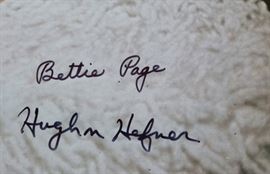 Bettie Page
Hugh M Hefner